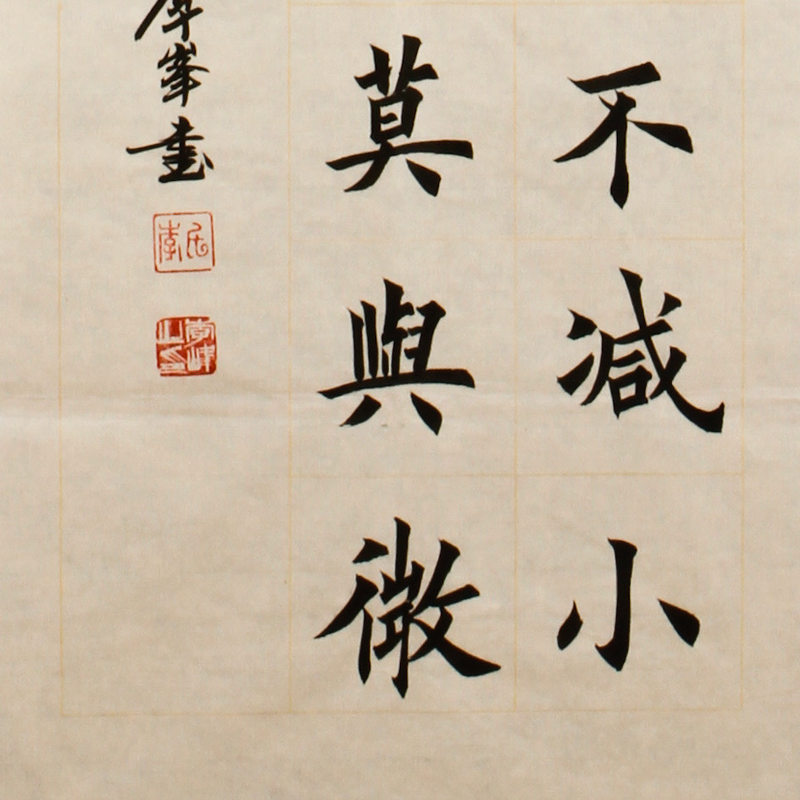 不減小
莫與微
峯書